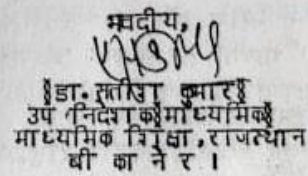 भवदीय,
§डा. सतीश कुमार§
उप निदेशक§माध्यमिक§
माध्यमिक शिक्षा, राजस्थान
बीकानेर।